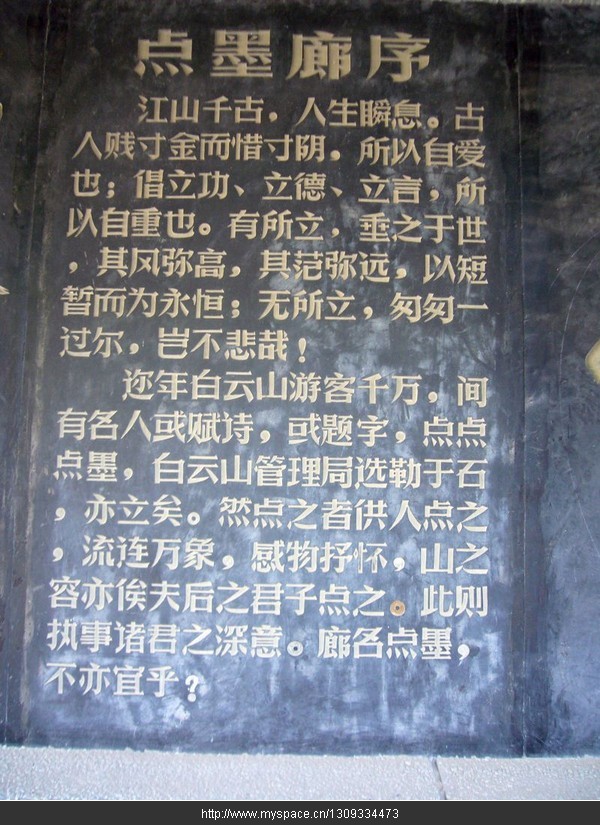 点墨廊序
江山千古，人生瞬息。古
人贱寸金而惜寸阴，所以自爱
也；倡立功、立德、立言，所
以自重也。有所立，垂之于世
，其风弥高，其范弥远，以短
暂而为永恒；无所立，匆匆一
过尔，岂不悲哉！
迩年白云山游客千万，间
有名人或赋诗，或题字，点点
点墨，白云山管理局选勒于石
，亦立矣。然点之者供人点之
，流连万象，感物抒怀，山之
容亦俟夫后之君子点之。此则
执事诸君之深意。廊名点墨，
不亦宜乎？
http://www.myspace.cn/1309334473